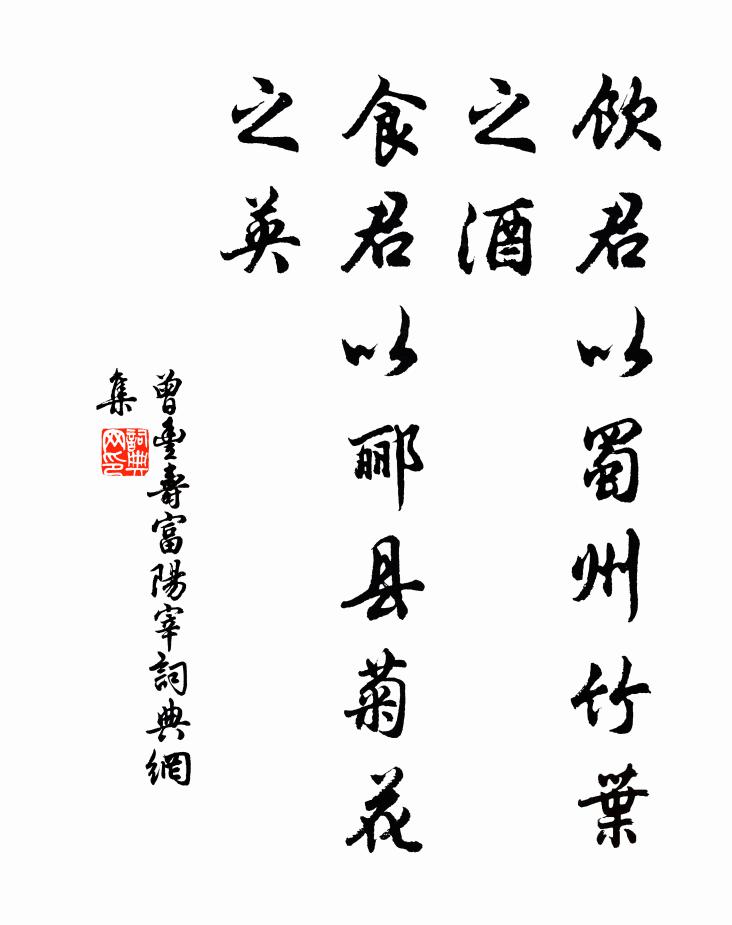 饮君以蜀州竹葉
之酒
食君以郦县菊花
之英
曾豐壽富陽宰詞典網
集
詞典
网印